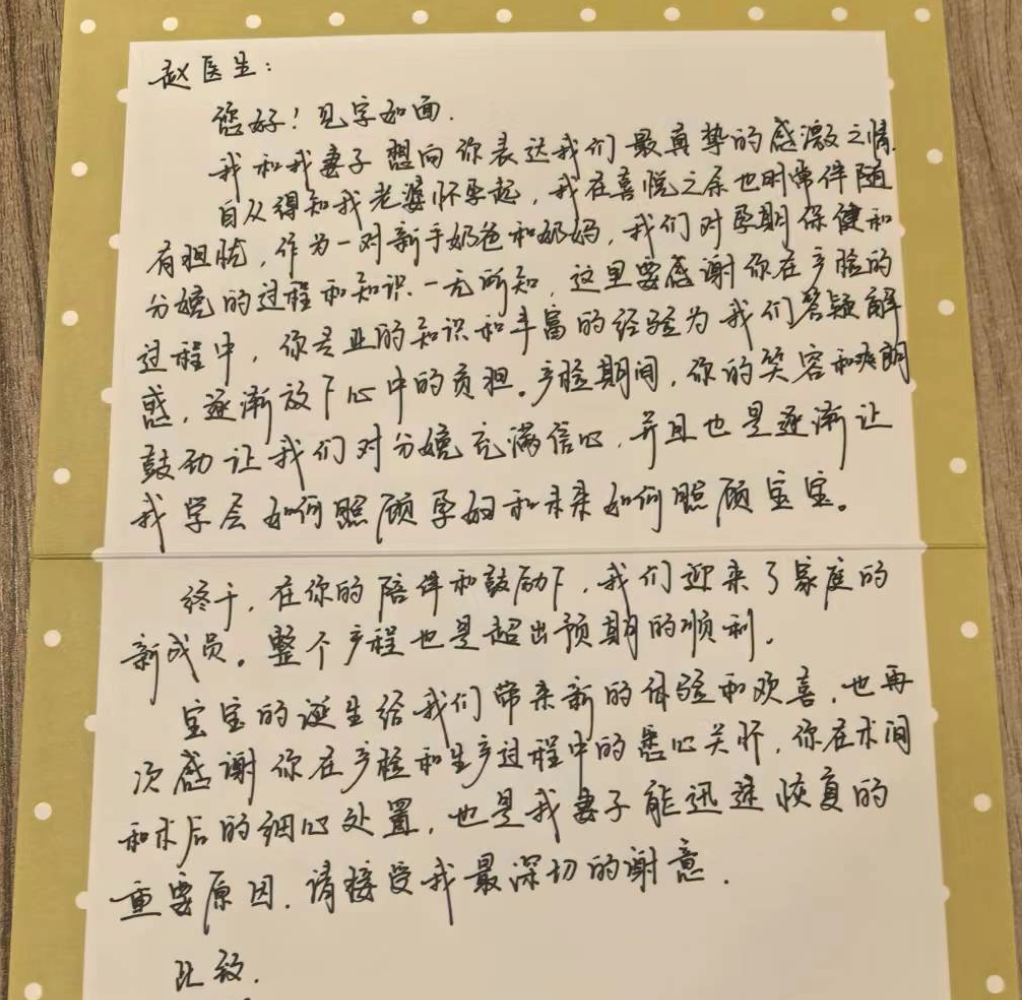 赵医生：
您好！见字如面.
我和我妻子想向你表达我们最真挚的感激之情.
自从得知我老婆怀孕起，我在喜悦之余也时常伴随
有担忧，作为一对新手奶爸和奶妈，我们对孕期保健和
分娩的过程和知识一无所知，这里要感谢你在产脸的
过程中，你专业的知识和丰富的经验为我们答疑解
惑，逐渐放下心中的负担。产脸期间，你的笑容和爽朗
鼓励让我们对分娩充满信心，并且也是逐渐让
我学会如何照顾孕妇和未来如何照顾宝宝。
终于，在你的陪伴和鼓励下，我们迎来了家庭的
新成员。整个产程也是超出预期的顺利.
宝宝的诞生给我们带来新的体验和欢喜，也再
次感谢你在产检和生产过程中的悉心关怀，你在术间
和术后的细心处置，也是我妻子能迅速恢复的
重要原因.请接受我最深切的谢意.
此致.